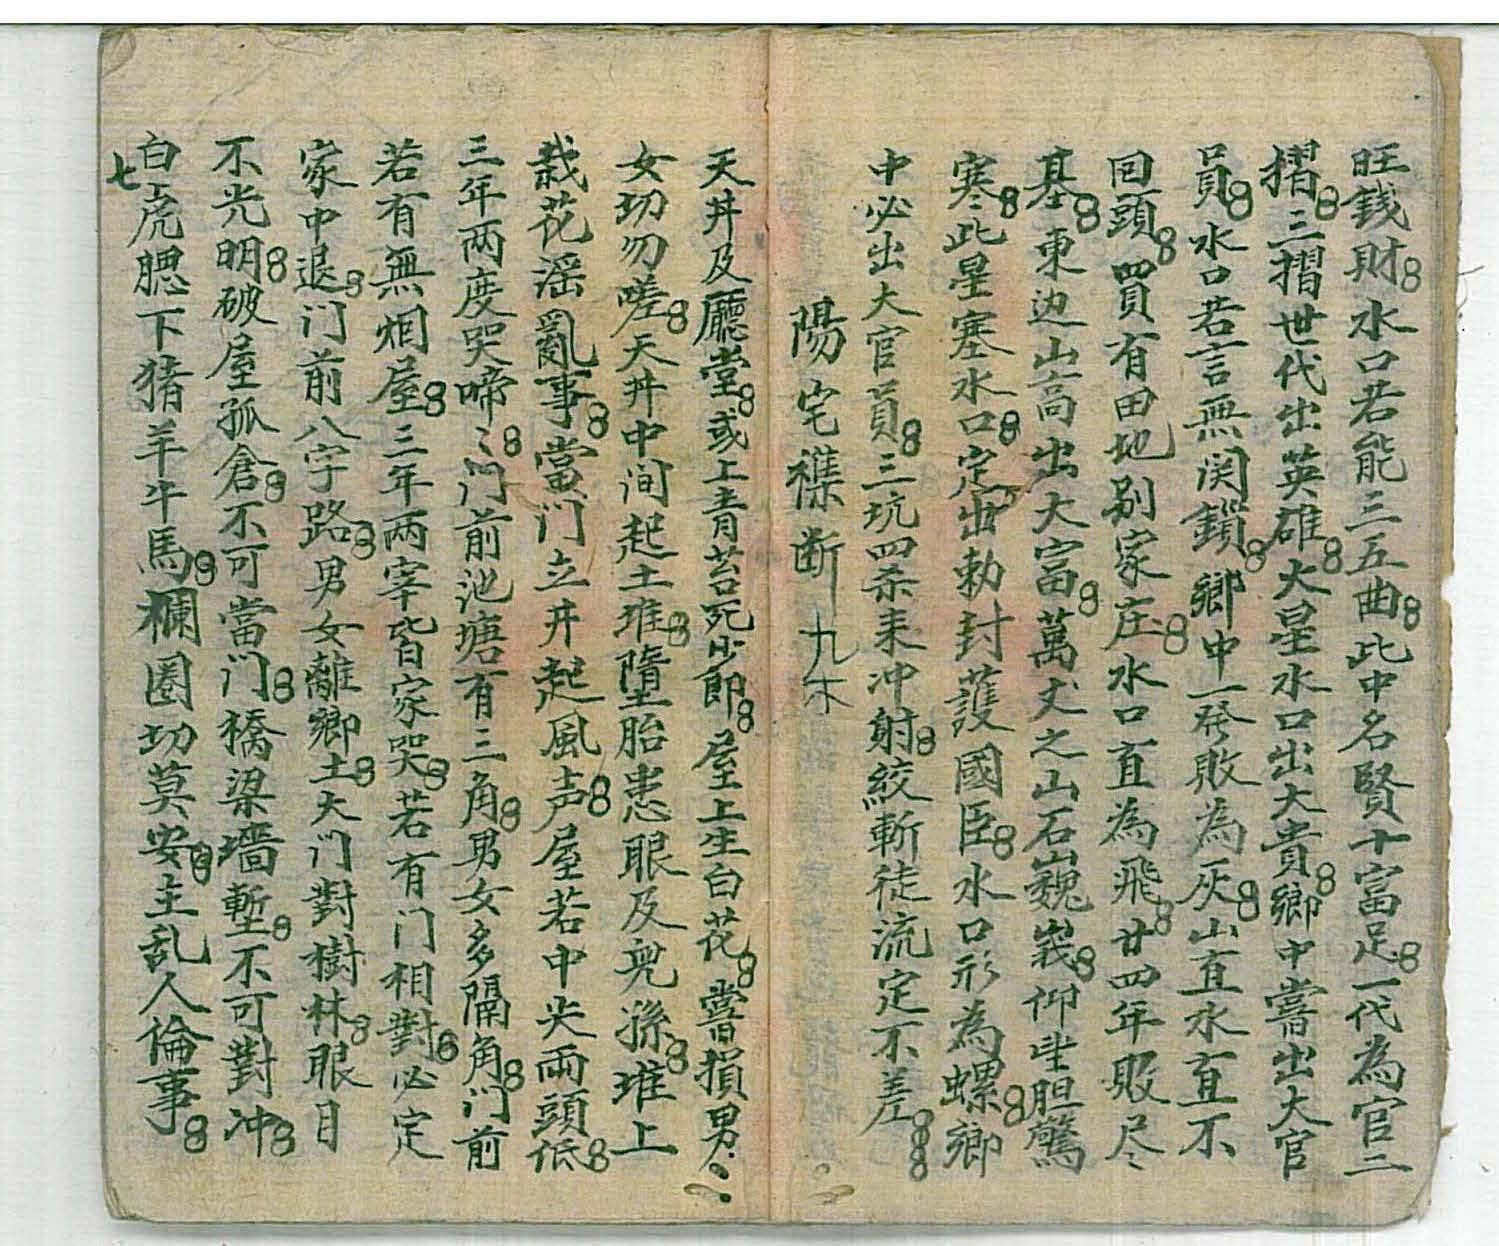 旺錢財水口若能三五曲此中名賢十富足一代為官二
摺三摺世代出英雄大星水口出大貴鄉中嘗出大官
員水口若言無関鎖鄉中一癸敗為灰山直水直不
回頭買有田地别家庄水口直為飛廿四年敗尽
基東边山高出大富萬丈之山石巍峩仰坐胆驚
寒此星塞水口定出勅封護國臣水口形為螺鄉
中必出大官員三坑四杀来冲射絞斬徒流定不差
陽宅襍断
天井及廳堂或上青苔死少郎屋上生白花嘗損男
女切勿嗟天井中间起土堆墮胎患眼及兒孫堆上
栽花滛亂事當门立井起風声屋若中央兩頭低
三年两度哭啼啼门前池塘有三角男女多隔角门前
若有無烟屋三年两宰皆家哭若有门相對必定
家中退门前八字路男女離鄉土大门對樹林眼目
不光明破屋孤倉不可當门橋梁墻塹不可對冲
白虎腮下猪羊牛馬欄圈切莫安主乱人倫事
七